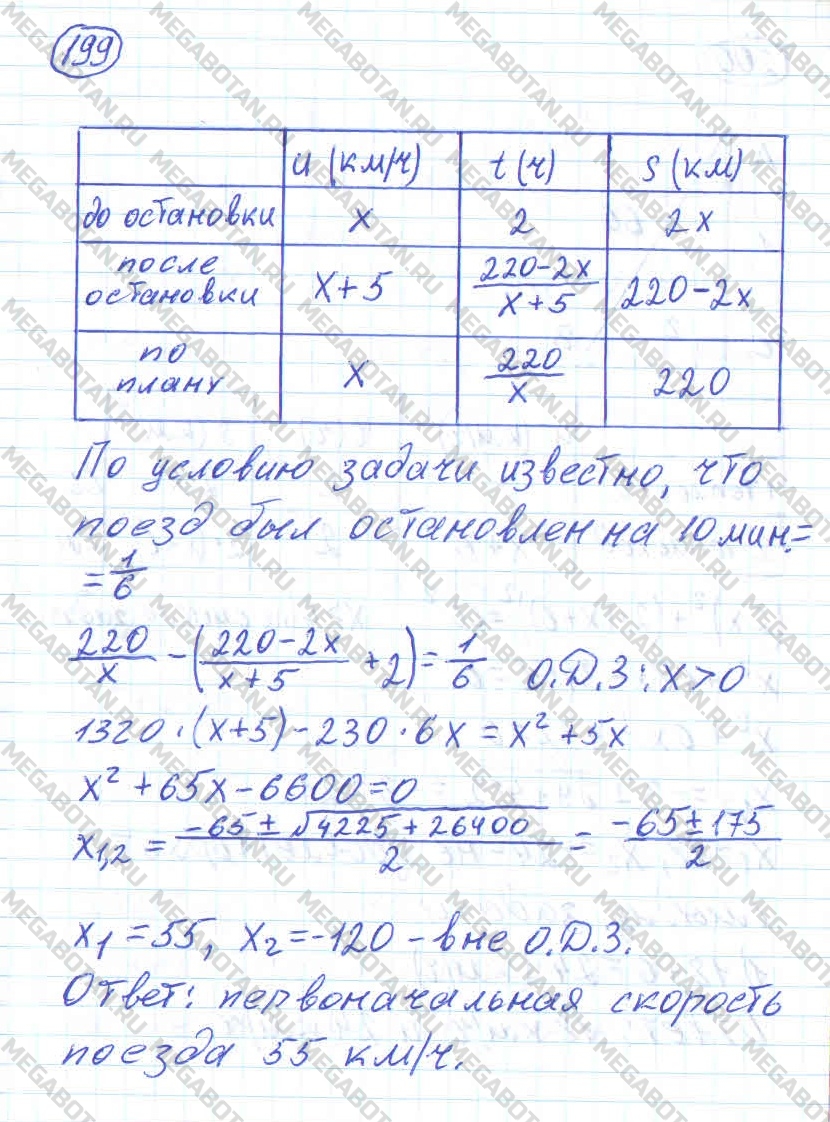 199
u (км/ч) t (ч) s (км)
до остановки x 2 2x
после остановки x+5 (220-2x)/(x+5) 220-2x
по плану x 220/x 220
По условию задачи известно, что
поезд был остановлен на 10 мин.=
= 1/6
220/x - ((220-2x)/(x+5) + 2) = 1/6 О.Д.З: x>0
1320·(x+5)-230·6x = x² +5x
x² +65x-6600=0
x₁,₂ = (-65± √4225+26400)/2 = (-65±175)/2
x₁ =55, x₂=-120 - вне О.Д.З.
Ответ: первоначальная скорость
поезда 55 км/ч.
MEGABOTAN.RU